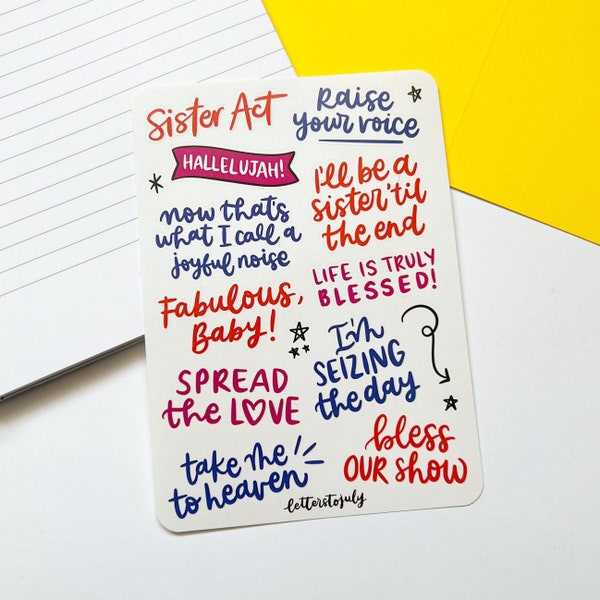 Sister Act
Raise
your voice
HALLELUJAH!
I'll be a
sister 'til
the end
now that's
what I call a
joyful noise
LIFE IS TRULY
BLESSED!
Fabulous,
Baby!
I'm
SEIZING
the day
SPREAD
the LOVE
bless
OUR show
take me
to heaven
letterstojuly